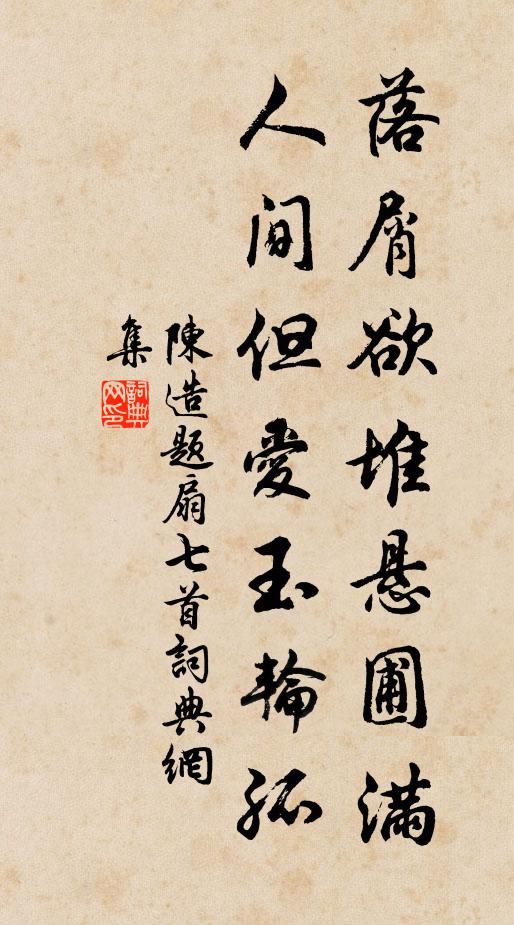 落屑欲堆悬圃满
人间但爱玉輪孤
陳造题扇七首詞典網
集
詞典
网印